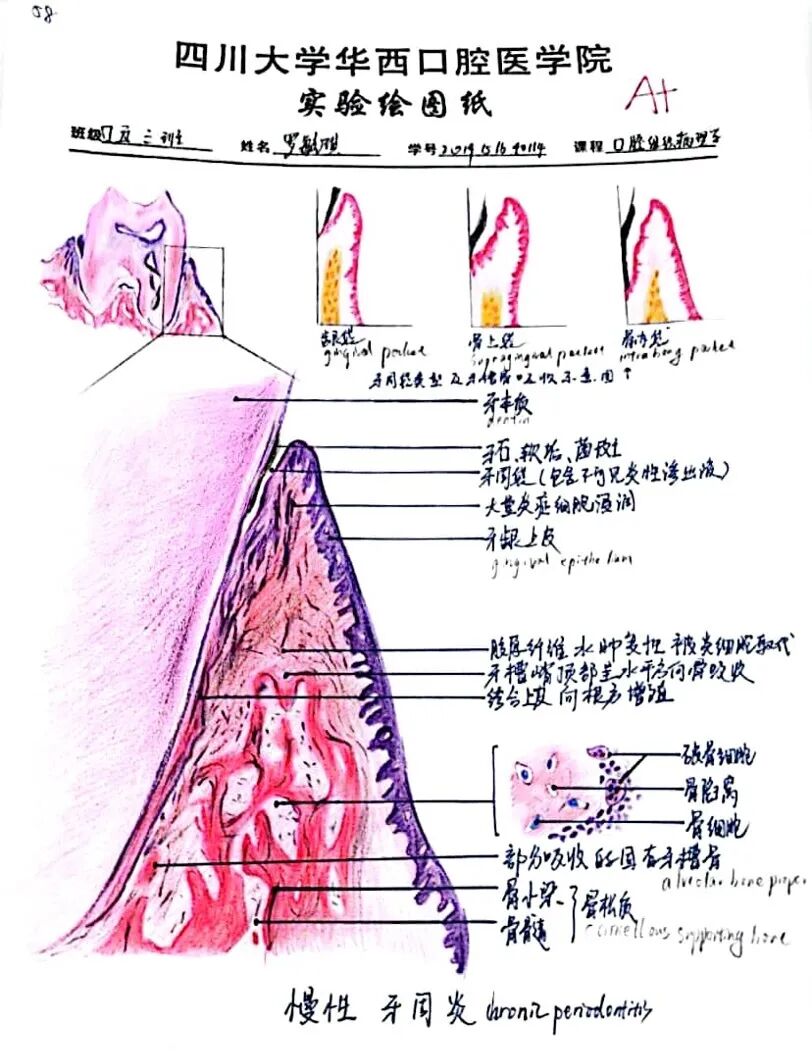 58
四川大学华西口腔医学院
实验绘图纸
A+
班级 口五三班 姓名 罗敏琪 学号 课程 口腔组织病理学
龈袋 骨上袋 骨内袋
gingival pocket supragingival pocket intrabony pocket
牙周袋类型及牙槽骨吸收示意图↑
牙本质
dentin
牙石、软垢、菌斑
牙周袋(包含不可见炎性渗出液)
大量炎症细胞浸润
牙龈上皮
gingival epithelium
胶原纤维水肿变性 被炎细胞取代
牙槽嵴顶部呈水平方向骨吸收
结合上皮向根方增殖
破骨细胞
骨陷窝
骨细胞
部分吸收的固有牙槽骨
alveolar bone proper
骨小梁
骨松质
骨髓
supporting bone
慢性 牙周炎 chronic periodontitis